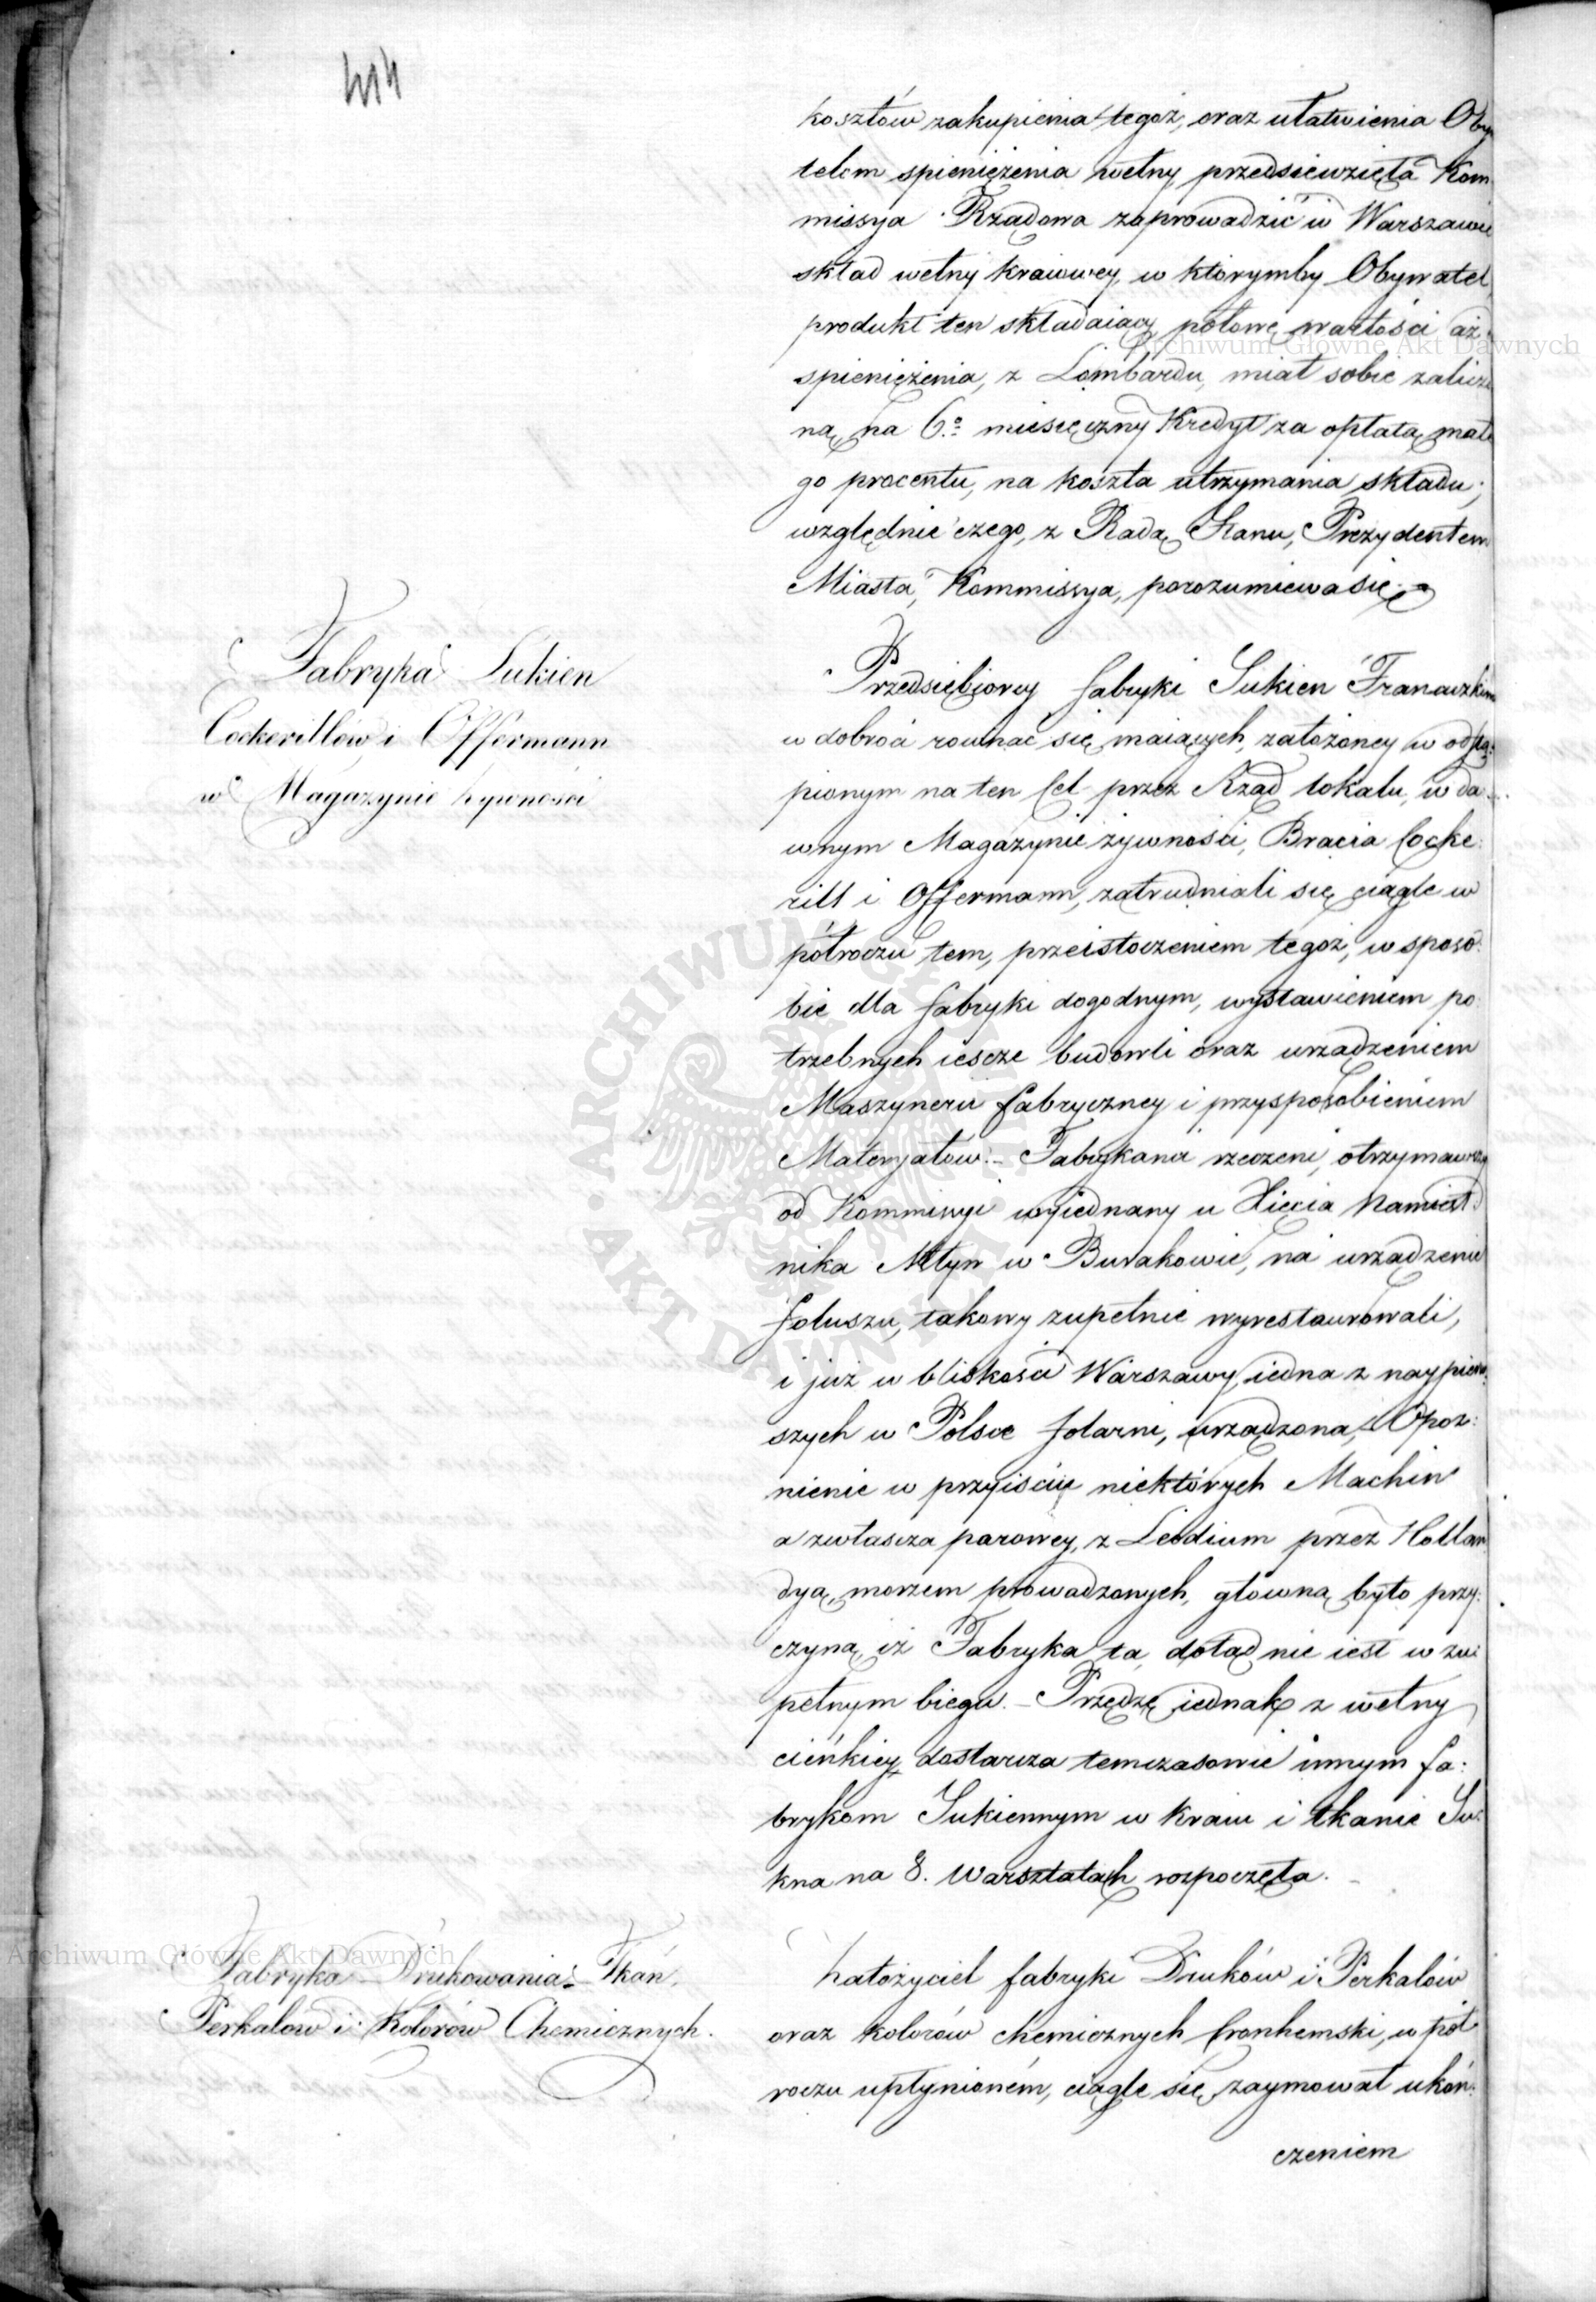 414
kosztów zakupienia tegoż, oraz ułatwienia Oby
telom spieniężenia wełny, przedsięwzięła Kom
missya Rządowa zaprowadzić w Warszawie
skład wełny kraiowey, w którymby Obywatel,
produkt ten składaiący, połowę wartości aż
spieniężenia, z Lombardu, miał sobie zaliczo
ną, na 6.º miesięczny Kredyt za opłatą małe
go procentu, na koszta utrzymania składu;
względnie czego, z Radą Stanu, Prezydentem
Miasta, Kommissya, porozumiewa się.
Fabryka Sukien
Cockerillów i Offermann
w Magazynie żywności
Przedsiębiorcy fabryki Sukien Francuzkim
w dobroci rownać się maiących, założoney w odstą:
pionym na ten Cel przez Rząd lokalu, w da
wnym Magazynie żywności, Bracia Cocke:
rill i Offermann, zatrudniali się ciągle w
półroczu tem, przeistoczeniem tegoż, w sposo:
bie dla fabryki dogodnym, wystawieniem po:
trzebnych iescze budowli oraz urządzeniem
Maszynerii fabryczney i przysposobieniem
Materyałów. – Fabrykanci rzeczeni, otrzymawszy
od Kommissyi wyiednany u Xięcia Namiest:
nika Młyn w Burakowie, na urządzenie
foluszu, takowy zupełnie wyrestaurowali,
i już w bliskości Warszawy, iedna z naypierw:
szych w Polsce folarni, urządzona, Opoz:
nienie w przyiściu niektórych Machin
a zwłascza parowey, z Leodium przez Hollan
dyą, morzem prowadzonych, główną było przy:
czyną, iż Fabryka ta, dotąd nie iest w zu:
pełnym biegu. – Przędzę iednak z wełny
cieńkiey, dostarcza temczasowie innym fa:
brykom Sukiennym w kraiu i tkanie Su:
kna na 8. Warsztatach rozpoczęła. –
Fabryka Drukowania Tkań,
Perkalów i Kolorów Chemicznych.
Założyciel fabryki Druków i Perkalów
oraz kolorów chemicznych Cronhemski, w pół
roczu upłynioném, ciągle się zaymował ukoń:
czeniem
Archiwum Główne Akt Dawnych
Archiwum Główne Akt Dawnych